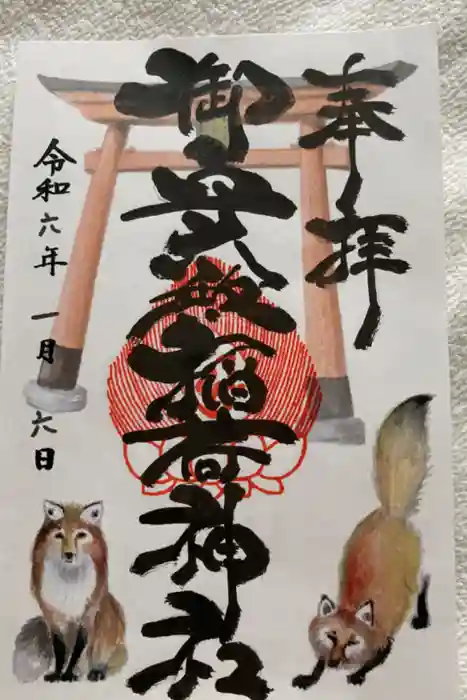 奉拝
御 稲荷神社
令和六年 一月 六日